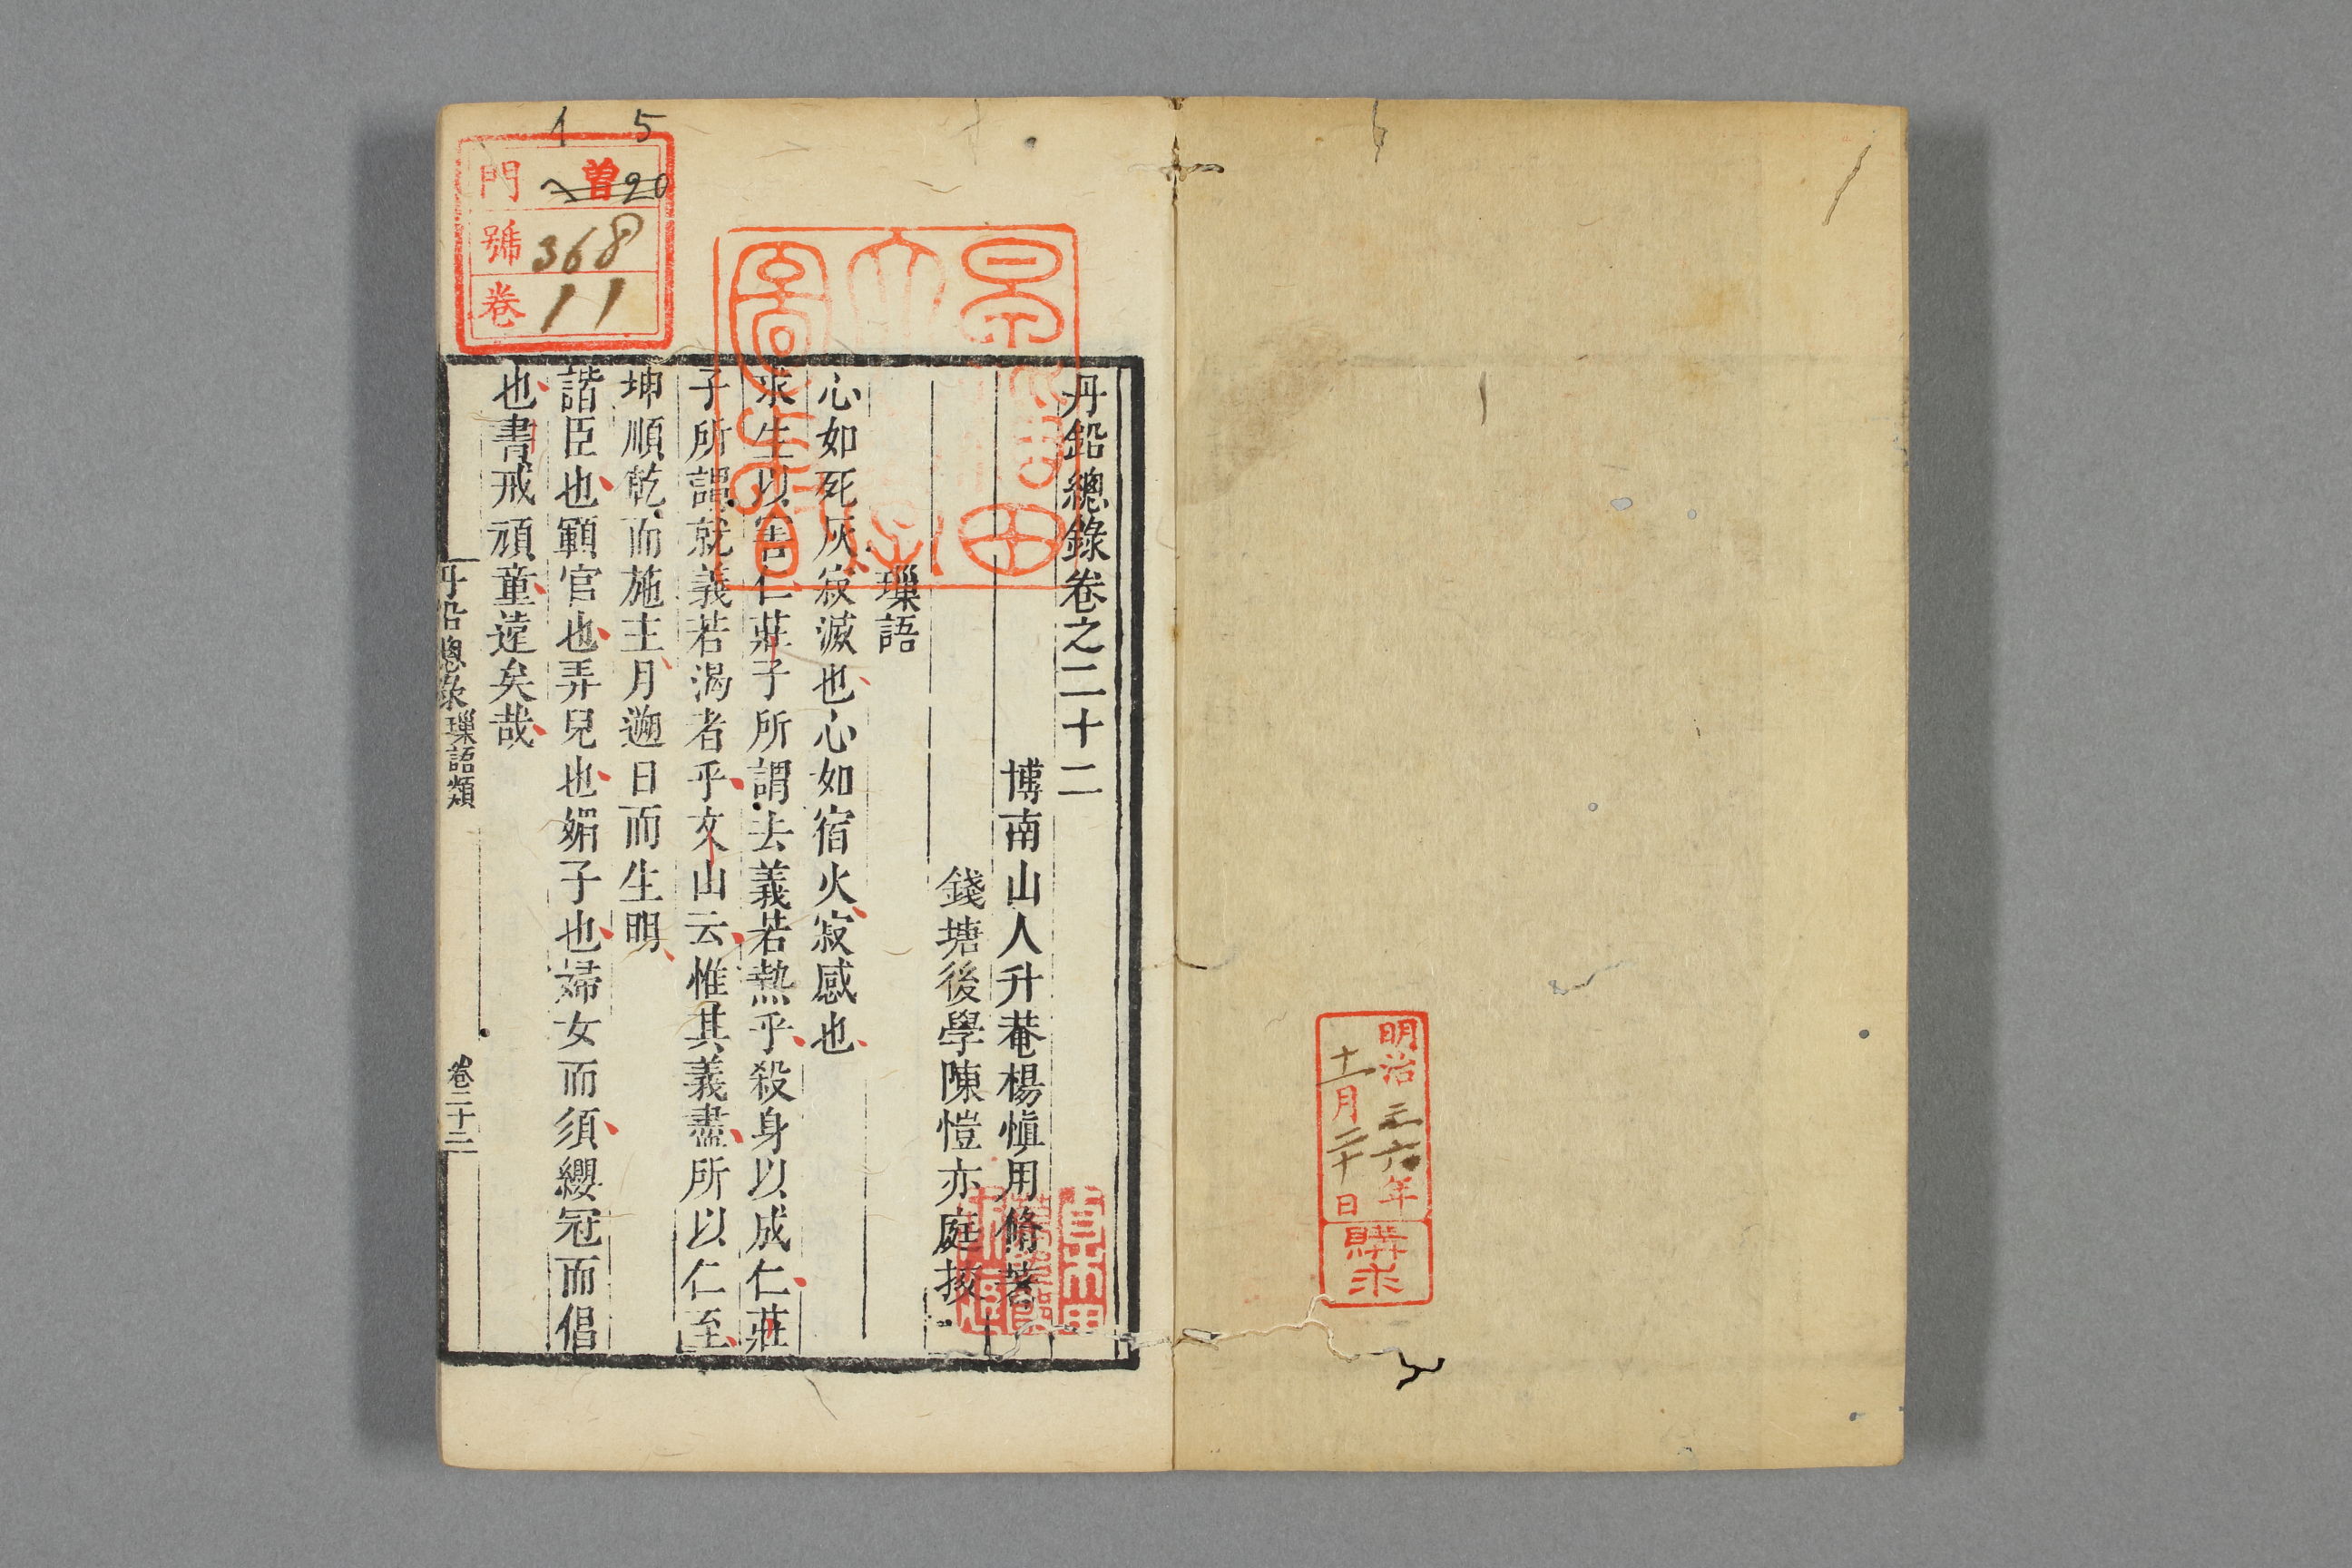 明治三六年
十一月二十日
購求
丹鉛總錄卷之二十二
博南山人升菴楊愼用脩著
錢塘後學陳愷亦庭挍
璅語
心如死灰寂滅也心如宿火寂感也
求生以害仁莊子所謂去義若熱乎殺身以成仁莊
子所謂就義若渴者乎文山云惟其義盡所以仁至
坤順乾而施主月遡日而生明
諧臣也顐官也弄兒也媚子也婦女而須纓冠而倡
也書戒頑童遠矣哉
丹鉛總錄 璅語類 卷二十二
15
門 曾 20
號 368
卷 11